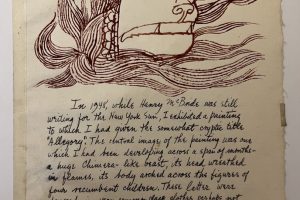 In 1948, while Henry McBride was still
writing for the New York Sun, I exhibited a painting
to which I had given the somewhat cryptic title
"Allegory". The central image of the painting was one
which I had been developing across a span of months—
a huge Chimera-like beast, its head wreathed
in flames, its body arched across the figures of
four recumbent children. These latter were